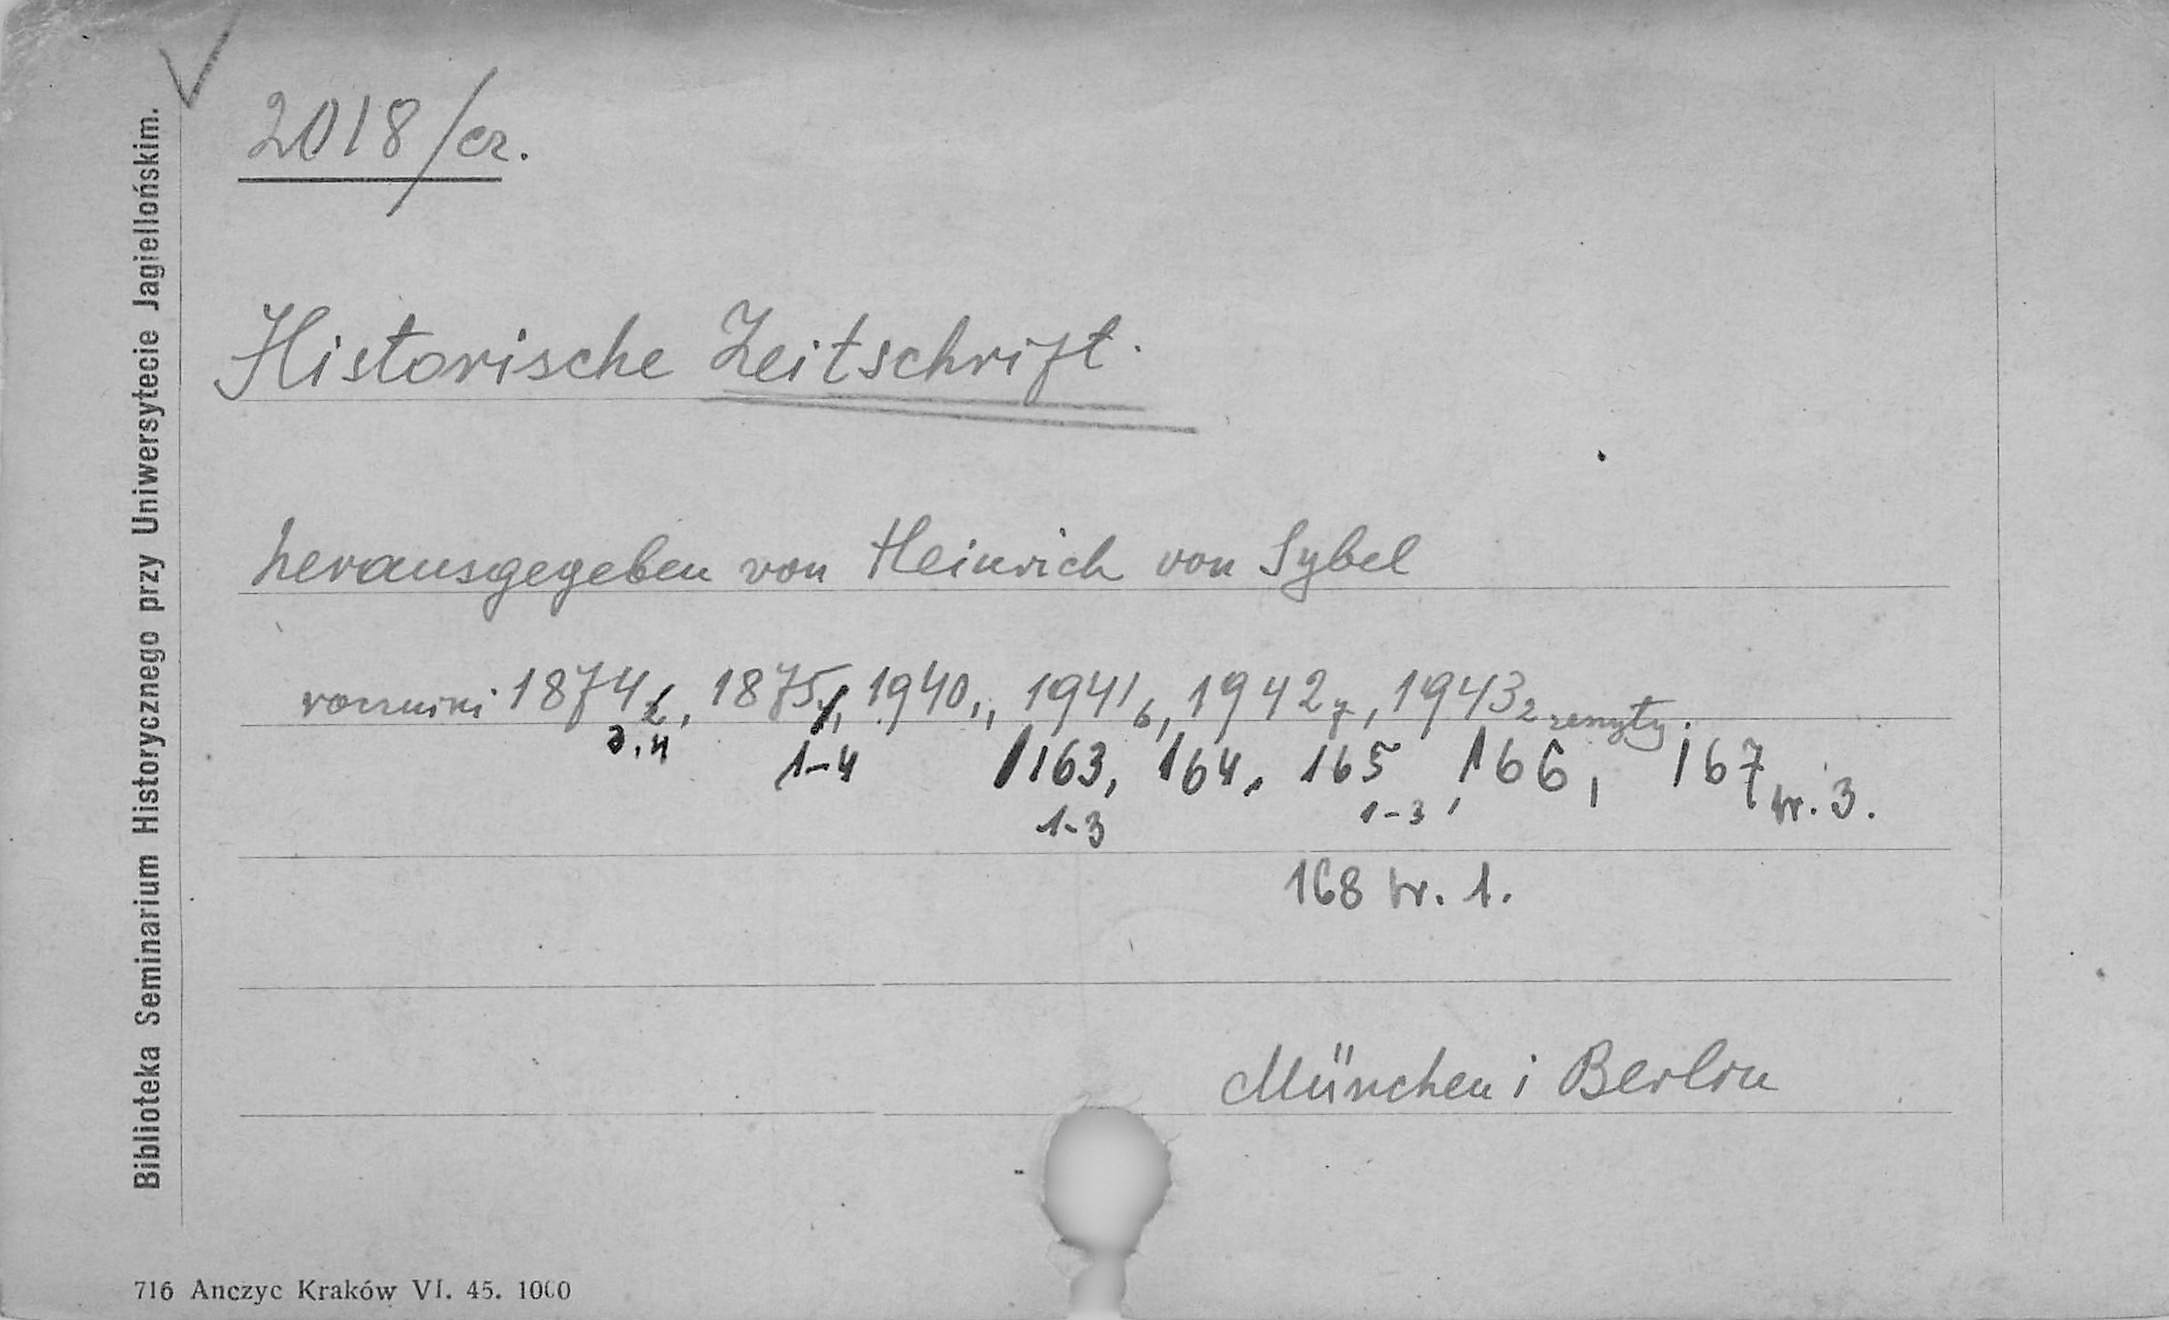 2018/cz.
Historische Zeitschrift.
herausgegeben von Heinrich von Sybel
roczniki 1874, 1875, 1940, 1941 6, 1942 7, 1943 2 zeszyty.
3.4 1-4 163, 164, 165, 166, 167 nr. 3.
1-3 1-3
168 nr. 1.
München i Berlin
Biblioteka Seminarium Historycznego przy Uniwersytecie Jagiellońskim.
716 Anczyc Kraków VI. 45. 1000